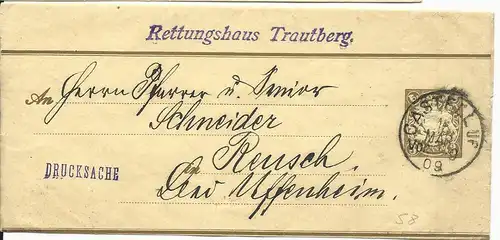 Rettungshaus Trautberg.
An Herrn Pfarrer u. Senior
Schneider
DRUCKSACHE
in Reusch,
Uffenheim.
CASTELL UF
09
58